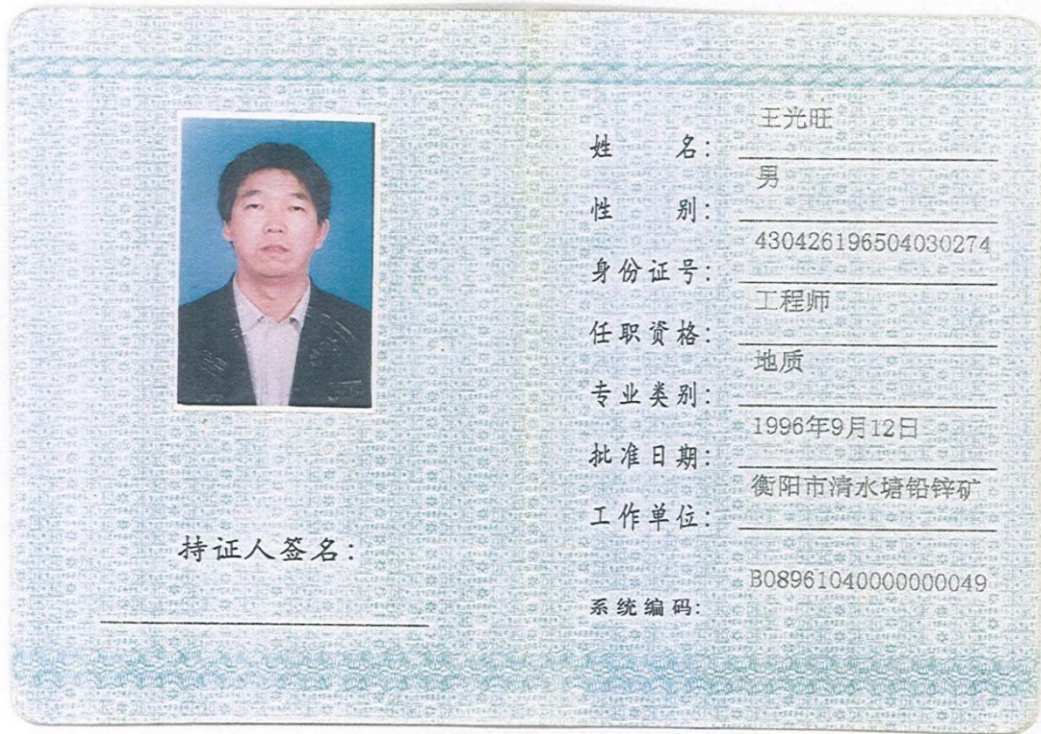 持证人签名:
姓 名: 王光旺
性 别: 男
身份证号: 430426196504030274
任职资格: 工程师
专业类别: 地质
批准日期: 1996年9月12日
工作单位: 衡阳市清水塘铅锌矿
系统编码: B08961040000000049